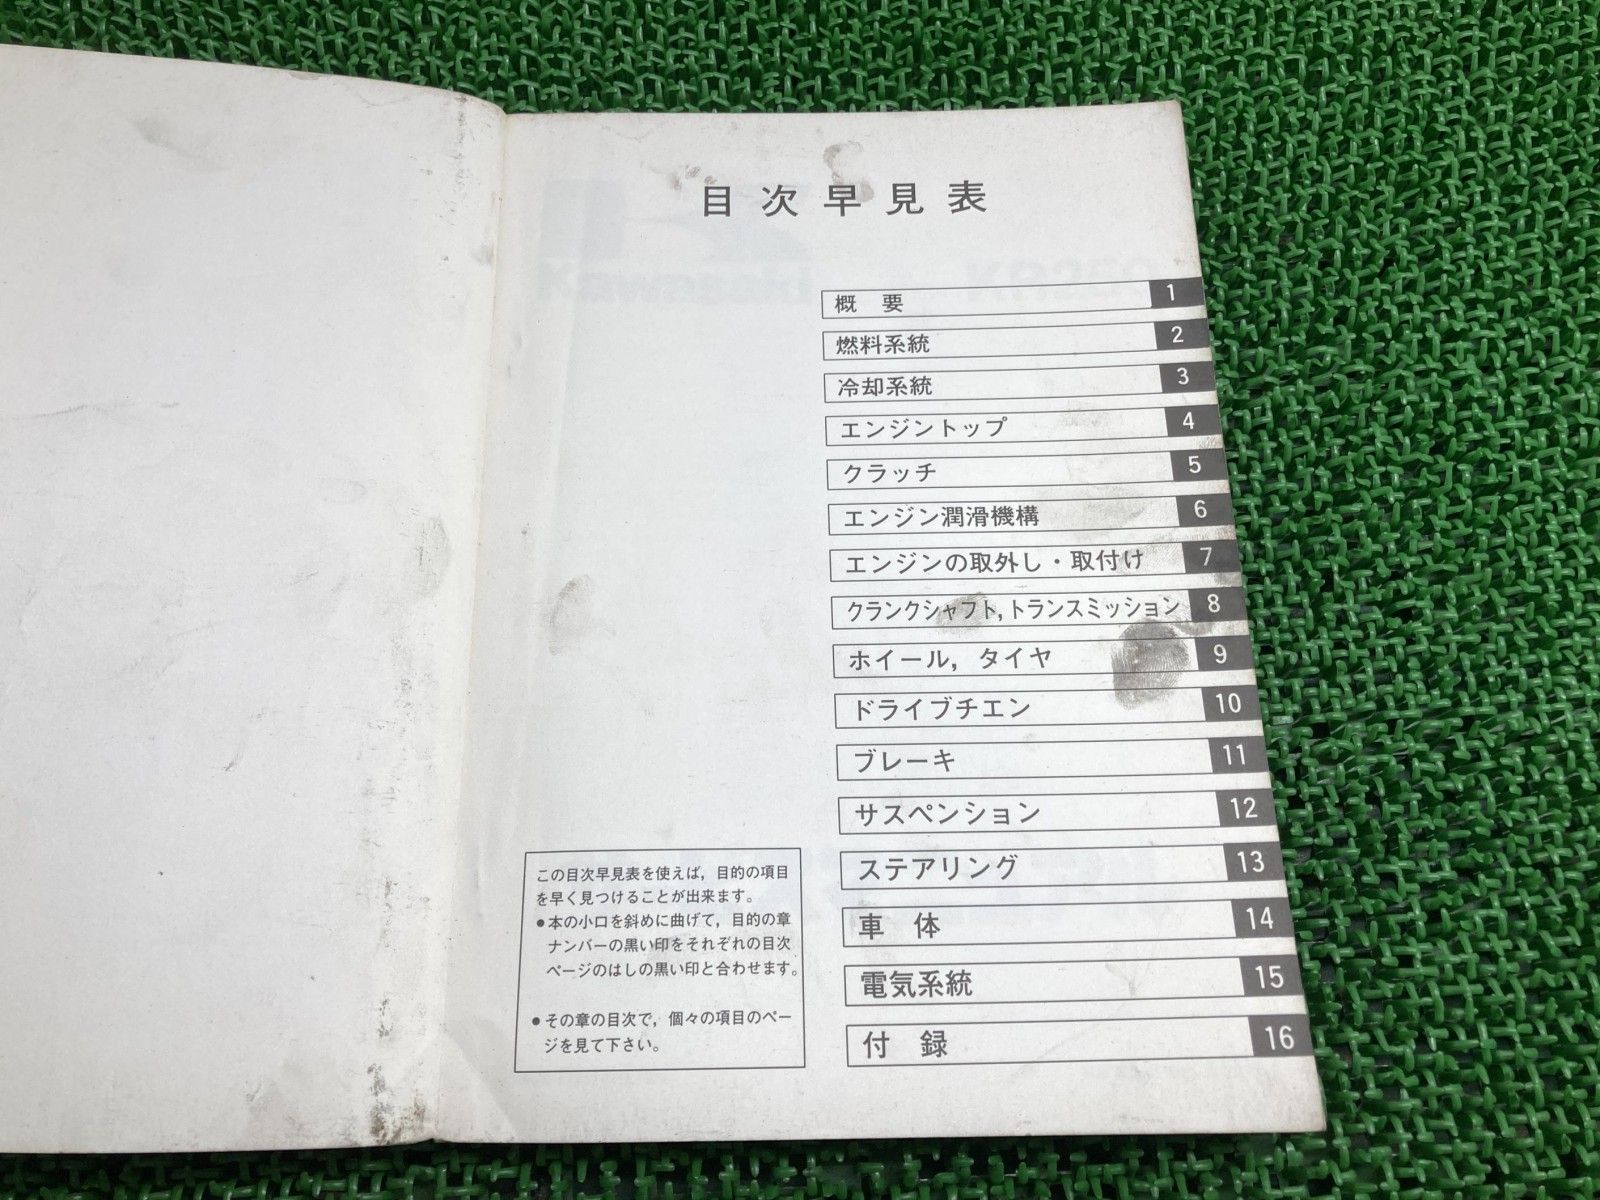 目次早見表
概 要 1
燃料系統 2
冷却系統 3
エンジントップ 4
クラッチ 5
エンジン潤滑機構 6
エンジンの取外し・取付け 7
クランクシャフト,トランスミッション 8
ホイール，タイヤ 9
ドライブチエン 10
ブレーキ 11
サスペンション 12
ステアリング 13
車 体 14
電気系統 15
付 録 16
この目次早見表を使えば，目的の項目
を早く見つけることが出来ます。
●本の小口を斜めに曲げて，目的の章
ナンバーの黒い印をそれぞれの目次
ページのはしの黒い印と合わせます。
●その章の目次で，個々の項目のペー
ジを見て下さい。